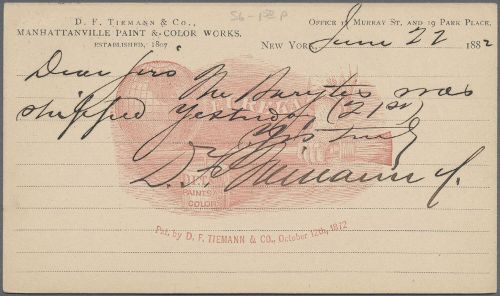 S6-1st P
D. F. Tiemann & Co.,
Manhattanville Paint & Color Works.
Established, 1807
Office 17 Murray St. and 19 Park Place,
New York, June 22 1882
Dear Sirs The Barytes was
shipped yesterday (21st)
Yrs truly
D. F. Tiemann & Co.
EUREKA
D.F.T.
PAINTS
COLOR
Pat. by D. F. TIEMANN & CO., October 12th, 1872